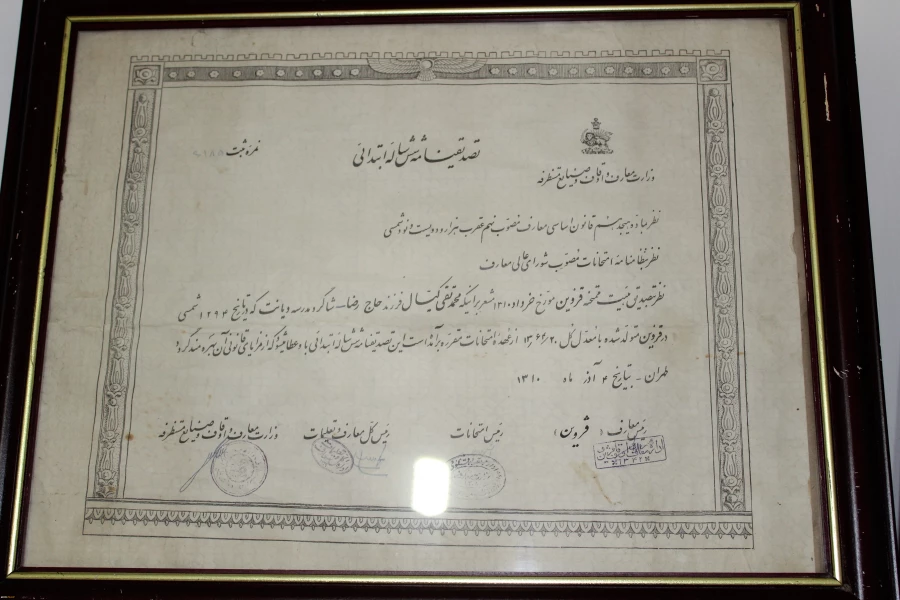 تصدیقنامه شش ساله ابتدائی
نمره ثبت
وزارت معارف و اوقاف و صنایع مستظرفه
نظر بماده هیجدهم قانون اساسی معارف مصوب نهم عقرب هزار و دویست و نود شمسی
نظر بنظامنامه امتحانات مصوب شورای عالی معارف
نظر بتصدیق هیئت ممتحنه قزوین مورخ خرداد ۱۳۱۰ مشعر بر اینکه محمد تقی کیال فرزند حاج رضا شاگرد مدرسه دیانت که در تاریخ ۱۲۹۴ شمسی
در قزوین متولد شده با معدل کل از عهده امتحانات مقرره برآمده است این تصدیقنامه شش ساله ابتدائی باو عطا میشود که از مزایای قانونی آن بهره مند گردد
طهران - بتاریخ ۴ آذر ماه ۱۳۱۰
رئیس معارف ( قزوین )
رئیس امتحانات
رئیس کل معارف و تعلیمات
وزارت معارف و اوقاف و صنایع مستظرفه